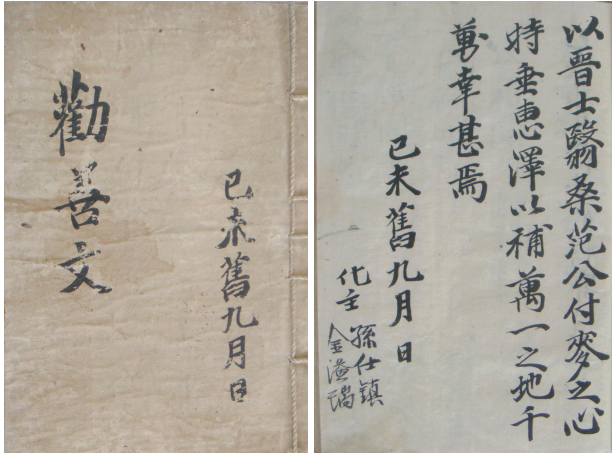 勸善文
己未舊九月日
以晉士翳桑范公付麥之心
特垂惠澤以補萬一之地千
萬幸甚焉
己未舊九月日
化主 孫仕鎮
金瀅瑞